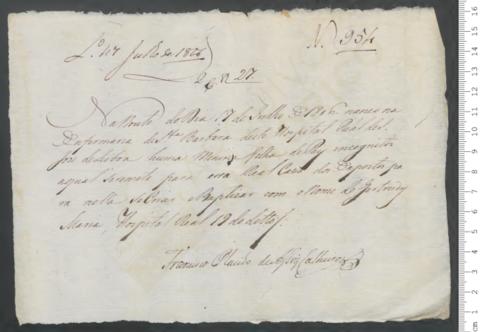 Lº 47 Julho de 1806
N. 954
2 C. N 27.
Na Noite do Dia 17 de Julho de 1806 nasceo na
Enfermaria de Sta Barbara deste Hospital Real de S.
José de Lisboa huma Menina filha de Pay incognito
a qual Se remete para essa Real Caza dos Expostos pa
ra nella Se Criar e Baptizar com o Nome de Gertrudes
Maria, Hospital Real 18 de
Francisco Placido de
cm 1 2 3 4 5 6 7 8 9 10 11 12 13 14 15 16